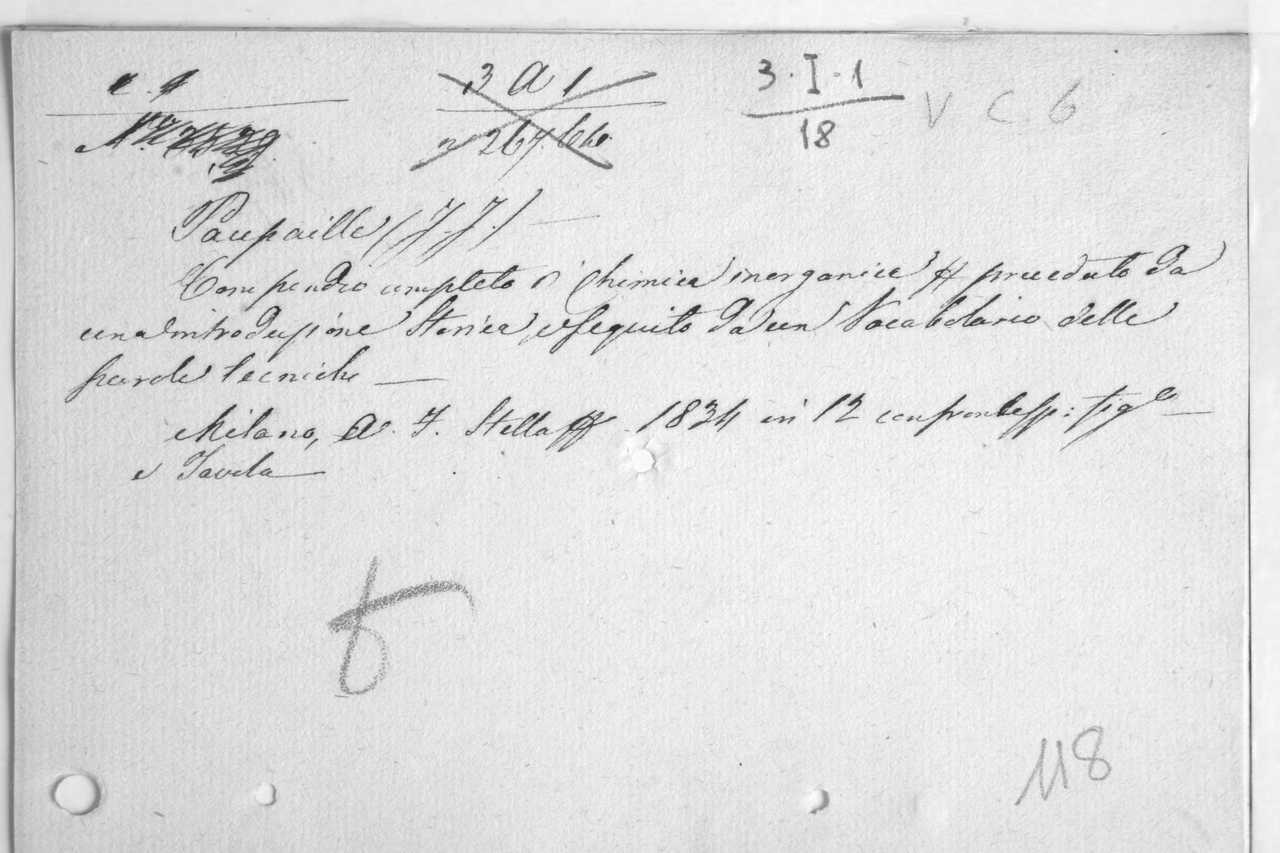 3 A 1
3·I·1
18
V C 6
267
Paupaille (J. J.) —
Compendio completo di Chimica inorganica preceduto da
una introduzione Storica e seguito da un Vocabolario delle
parole tecniche —
Milano, A. F. Stella 1834 in 12 con frontesp: fig.o —
e Tavola —
118